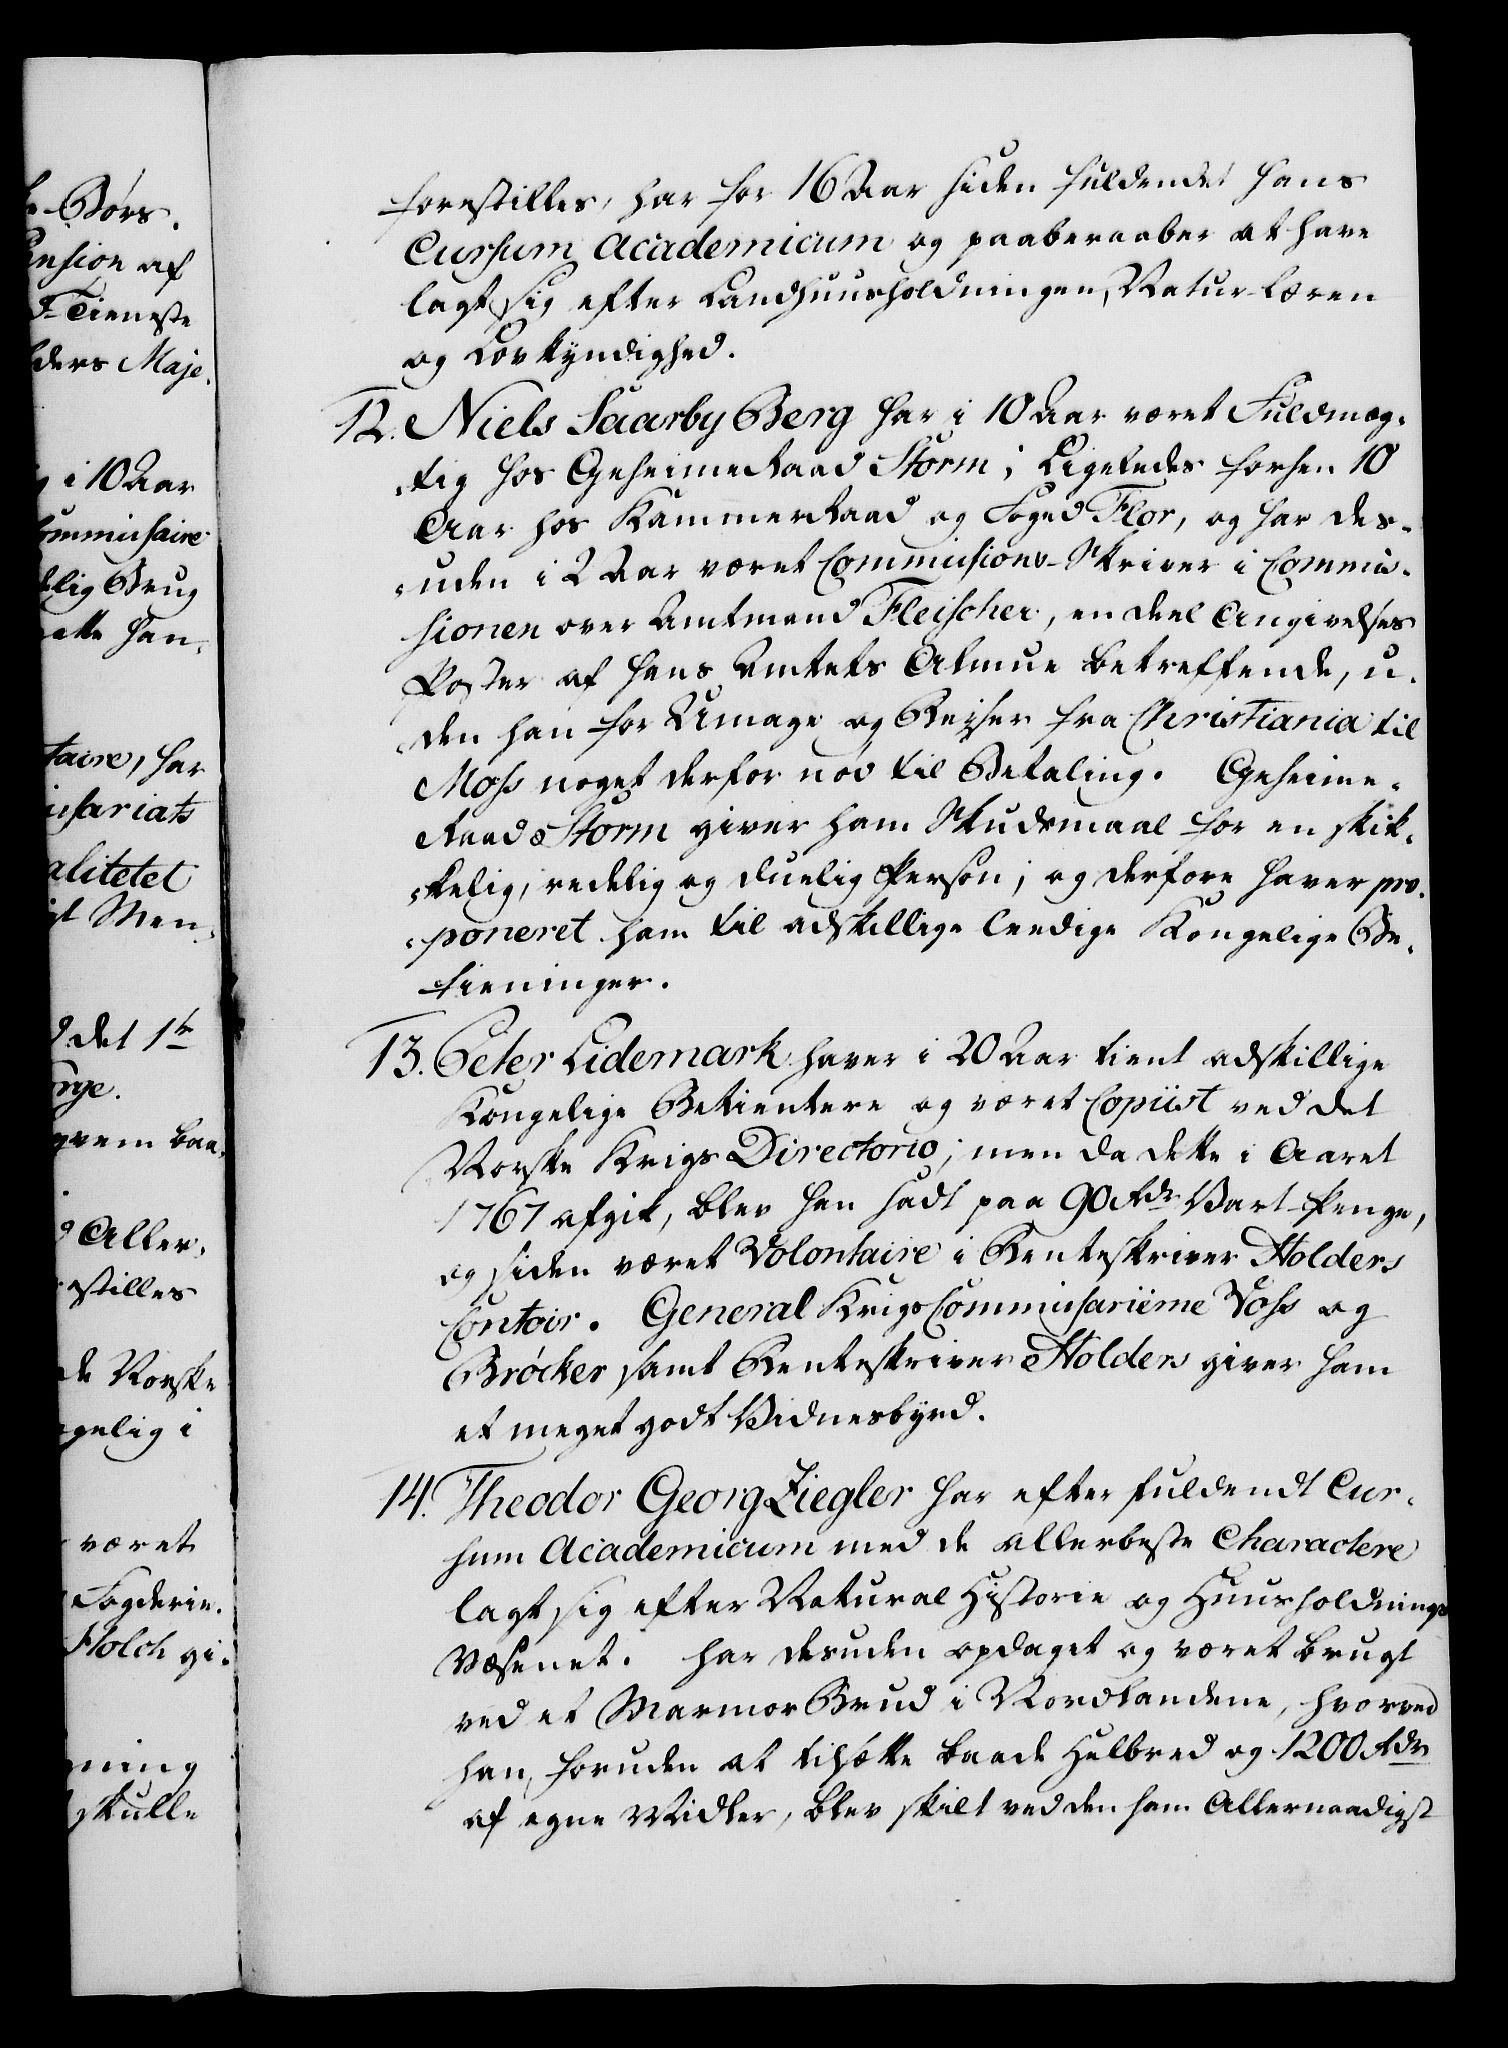 e Børs.
ension af
d. Tieneste
lders Maje-
i 10 Aar
ommissaire
elig Brug
ette han
taire, har
issariats
alitetet
gt Men-
d det 1te
orge.
gnem baa-
d Aller-
estilles
de Norske
gelig i
været
Fogderie.
Holch gi-
ning
skulle
forestilles, har for 16 Aar siden fuldendet hans
Cursum Academicum og paaberaaber at have
lagt sig efter Landhuusholdningen, Natur-Læren
og Lovkyndighed.
12. Niels Saarby Berg har i 10 Aar været Fuldmæg-
tig hos GeheimeRaad Storm; Ligeledes forhen 10
Aar hos KammerRaad og Foged Flor, og har des-
uden i 2 Aar været Commissions-Skriver i Commis-
sionen over Amtmand Fleischer, en deel Angivelses
Poster af hans Amtets Almue betreffende, u-
den han for Umage og Reyser fra Christiania til
Moss noget derfor nød til Betaling. Geheime-
Raad Storm giver ham Skudsmaal for en skik-
kelig, redelig og duelig Person; og derfore haver pro-
poneret ham til adskillige leedige Kongelige Be-
tieninger.
13. Peter Lidemark haver i 20 Aar tient adskillige
Kongelige Betientere og været Copiist ved det
Norske Krigs Directorio; men da dette i Aaret
1767 afgik, blev han sadt paa 90 Rdr Vart-Penge,
og siden været Volontaire i Renteskriver Holders
Contoir. General KrigsCommissairerne Voss og
Bröcker samt Renteskriver Holders giver ham
et meget godt Vidnesbyrd.
14. Theodor Georg Ziegler har efter fuldendt Cur-
sum Academicum med de allerbeste Charactere
lagt sig efter Natural Historie og Huusholdnings
Væsenet. har desuden opdaget og været brugt
ved et MarmorBrud i Nordlandene, hvorved
han, foruden at tilsætte baade Helbred og 1200 Rdr
af egne Midler, blev skilt ved den ham Allernaadigst